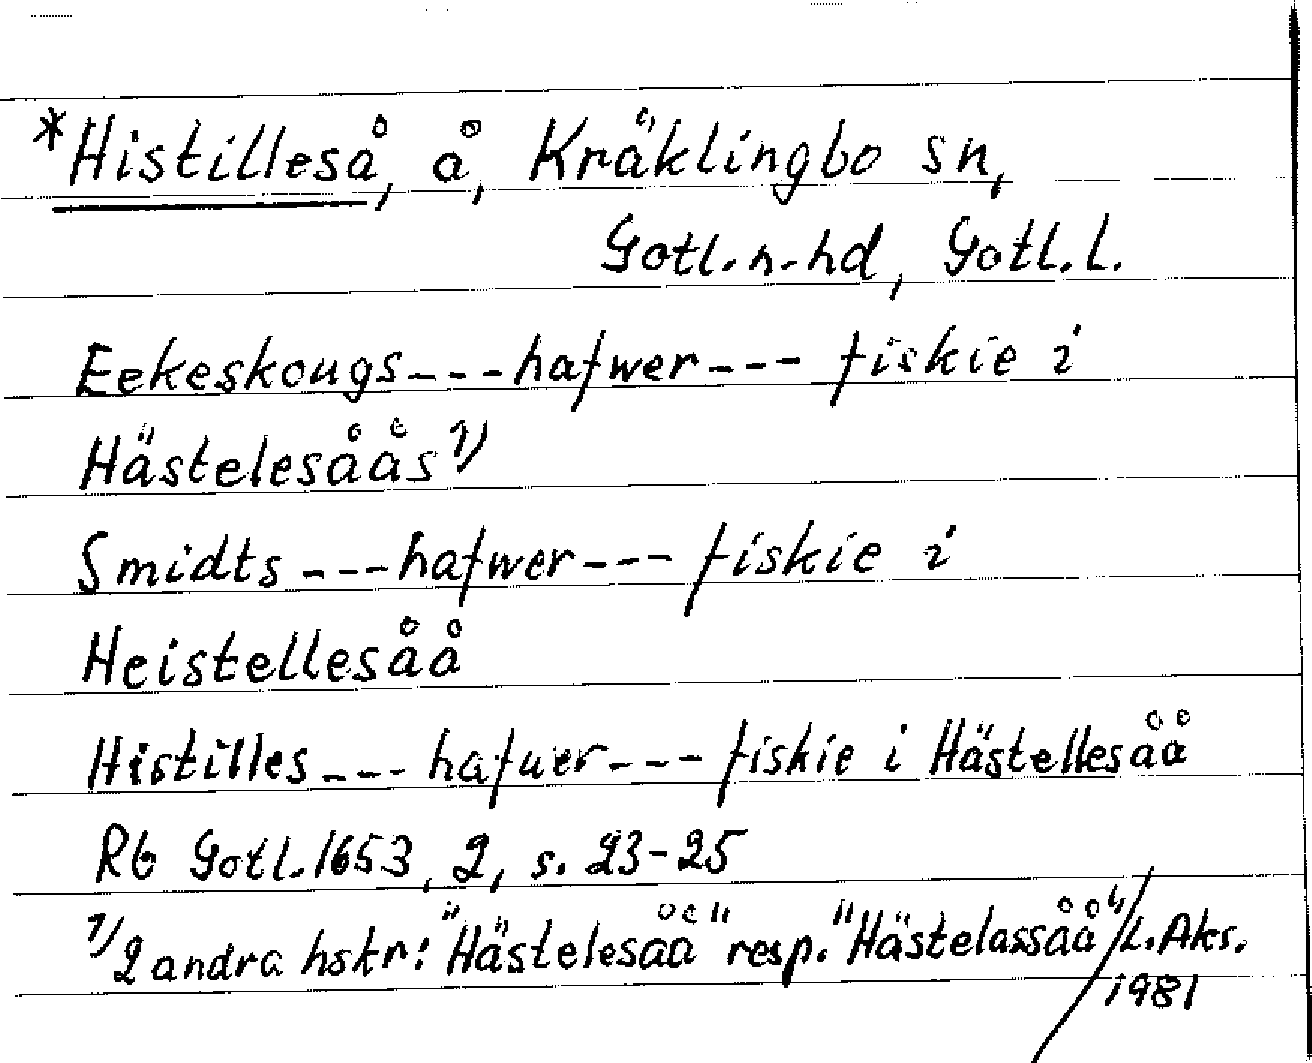 *Histilleså, å, Kräklingbo sn,
Gotl. n. hd, Gotl. l.
Eekeskougs --- hafwer --- fiskie i
Hästelesåås 1)
Smidts --- hafwer --- fiskie i
Heistellesåå
Histilles --- hafuer --- fiskie i Hästellesåå
Rb Gotl. 1653, 2, s. 23-25
1) 2 andra hskr: "Hästelesåå" resp. "Hästelassåå" / L. Aks.
1981